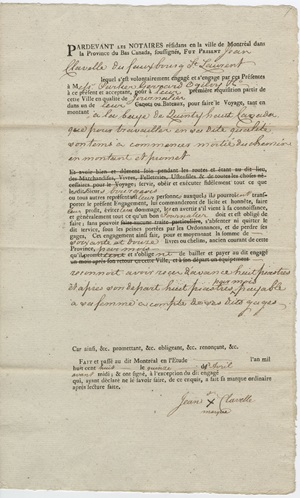 PARDEVANT LES NOTAIRES résidans en la ville de Montréal dans
la Province du Bas Canada, soussignés, FUT PRESENT Jean
Clavelle du fauxbourg St Laurent
lequel s'est volontairement engagé et s'engage par ces Présentes
à Mess. Parker Gerrard Ogilvy
à ce présent et acceptant, pour à première réquisition partir de
cette Ville en qualité de Journalier
dans un de leur Canots ou Bateaux, pour faire le Voyage, tant en
montant
à la baye de Quinty haut Canada
que pour travailler en sa dite qualité
en montant et promet
Et avoir bien et dûment soin pendant les routes et étant au dit lieu,
des Marchandises, Vivres, Pelleteries, Ustensiles, & de toutes les choses né-
cessaires pour le Voyage; servir, obéir et exécuter fidèlement tout ce que
les dits Sieurs Bourgeois ou
tous autres représentant leurs personnes, auxquels ils pourroient trans-
porter le présent Engagement, lui commanderont de licite et honnête, faire
leur profit, éviter leur dommage, les en avertir s'il vient à sa connoissance,
et généralement tout ce qu'un bon Journalier doit et est obligé de
faire; sans pouvoir faire aucune traite particulière, s'absenter ni quitter le
dit service, sous les peines portées par les Ordonnances, et de perdre ses
gages. Cet engagement ainsi fait, pour et moyennant la somme de
soixante et douze livres ou chelins, ancien courant de cette
Province, par mois
et oblige de bailler et payer au dit engagé
un mois après son retour en cette Ville, et à son départ un équipement
reconnoit avoir reçu d'avance huit piastres
et après son départ huit piastres par mois payable
à sa femme à compte de ses dits gages.
Car ainsi, &c. promettant, &c. obligeant, &c. renonçant, &c.
FAIT et passé au dit Montréal en l'Etude l'an mil
huit cent huit le onze Avril
avant midi; & ont signé, à l'exception du dit engagé
qui, ayant déclaré ne le savoir faire, de ce requis, a fait sa marque ordinaire
après lecture faite.
Jean X Clavelle
marque